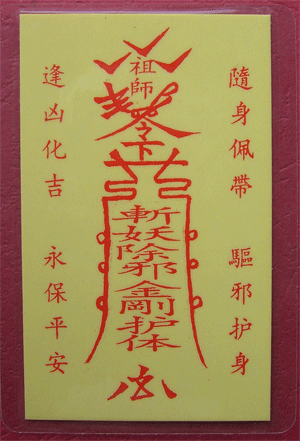 隨身佩帶 驅邪护身
祖師
令下
斬妖除邪金剛护体
逢凶化吉 永保平安